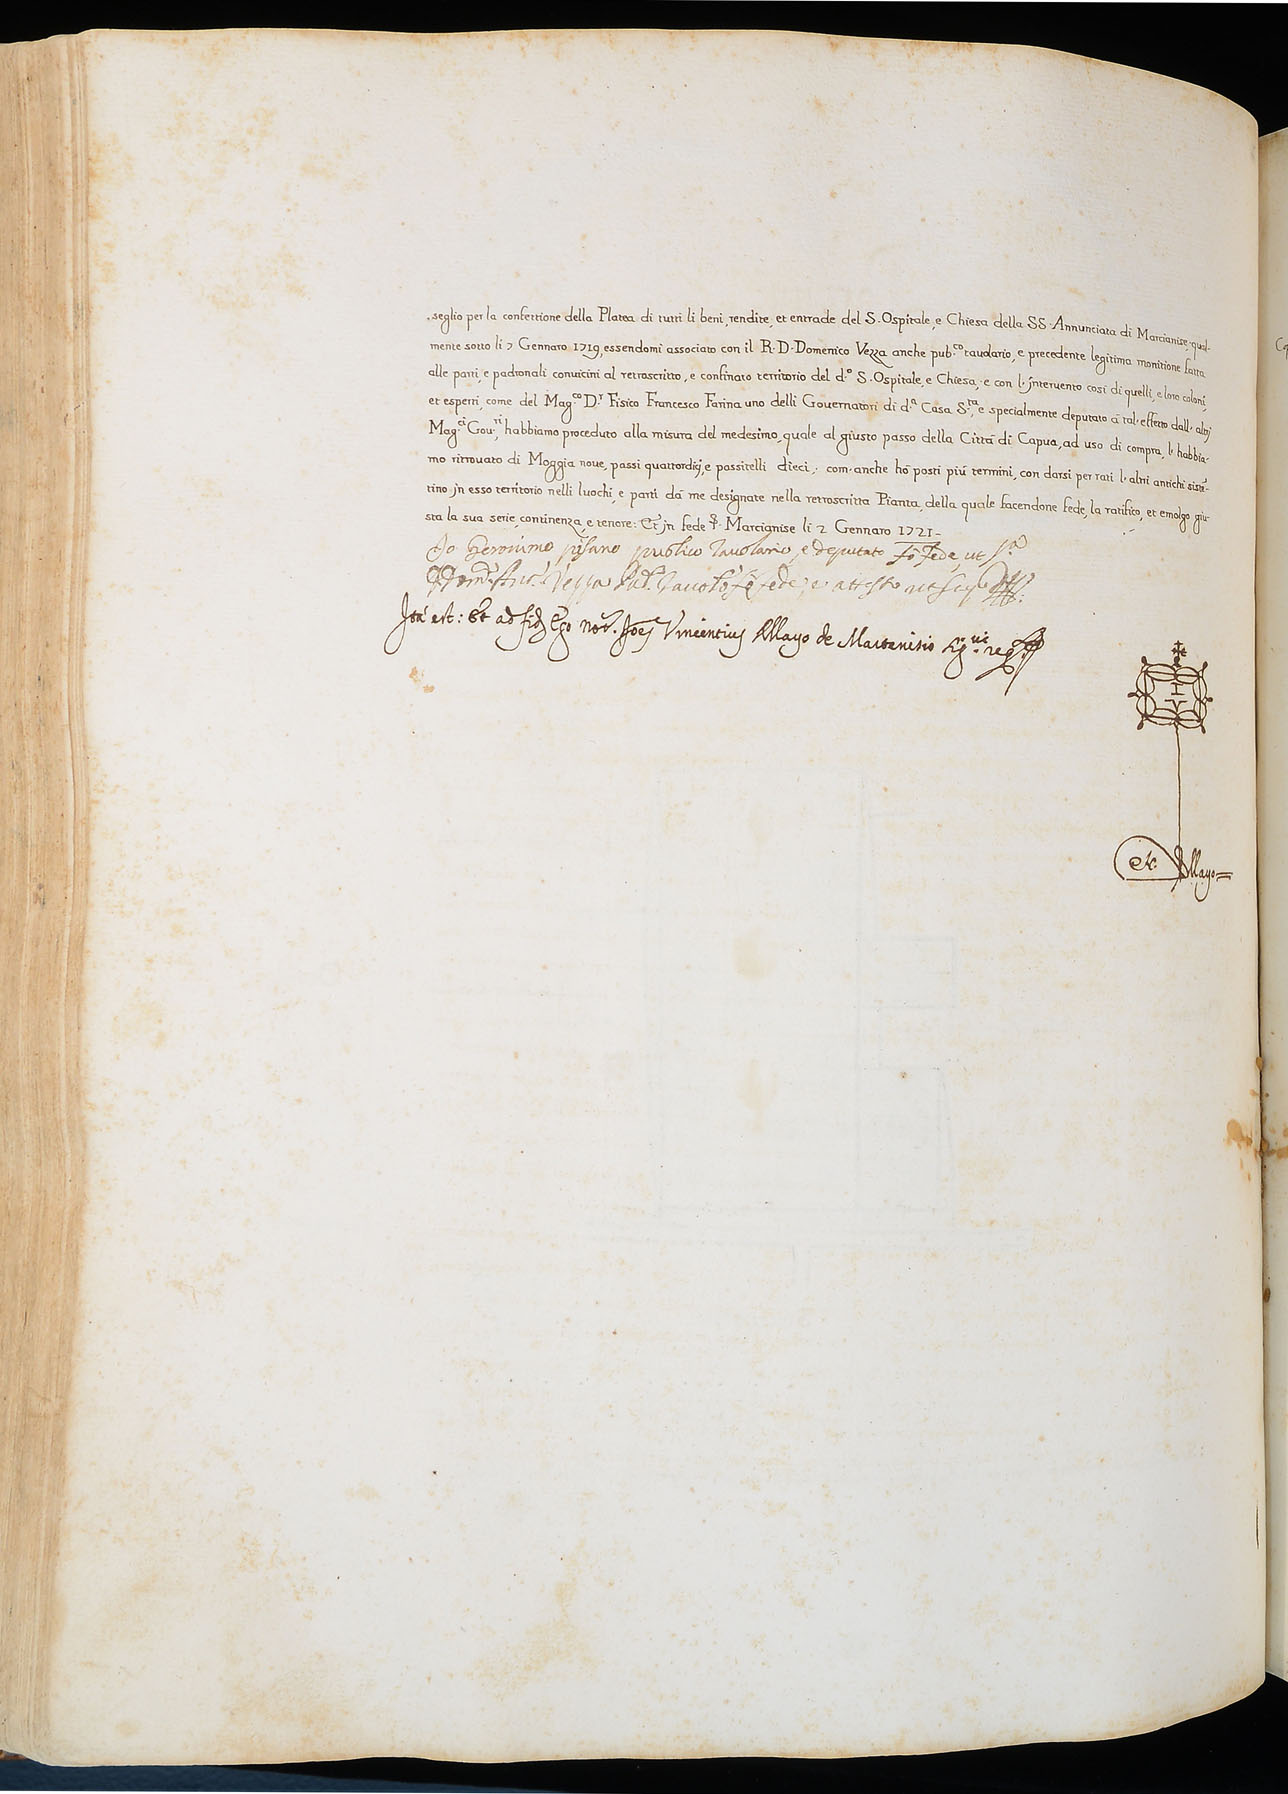 seglio per la confettione della Platea di tutti li beni, rendite, et entrade del S. Ospitale, e Chiesa della SS. Annunciata di Marcianise, qual-
mente sotto li 7 Gennaro 1719, essendomi associato con il R. D. Domenico Vezza anche pub.co tavolario, e precedente legitima monitione fatta
alle parti, e padronali convicini al retroscritto, e confinato territorio del d.o S. Ospitale, e Chiesa, e con l'jntervento cosi di quelli, e loro coloni,
et esperti, come del Mag.co D.r Fisico Francesco Farina uno delli Governatori di d.a Casa S.ta, e specialmente deputato á tal' effetto dall' altri
Mag.ci Gov.ri, habbiamo proceduto alla misura del medesimo, quale al giusto passo della Cittá di Capua, ad uso di compra, l' habbia-
mo ritrovato di Moggia nove, passi quattordicj, e passitelli dieci; com' anche ho posti piú termini, con darsi per rati l' altri antichi sisté-
tino jn esso territorio nelli luochi, e parti dá me designate nella retroscritta Pianta, della quale facendone fede, la ratifico, et emolgo giu-
sta la sua serie, continenza, e tenore: Et jn fede Marcianise li 2 Gennaro 1721-
Io Geronimo pisano publico Tavolario, e deputato fó fede, ut s.a
Vezza Tavol.o fó fede, e attesto ut supra
Ita est: Et ad fidem Ego Not. Joes Vincentius Mayo de Marcenisio reg.
I V
Mayo=